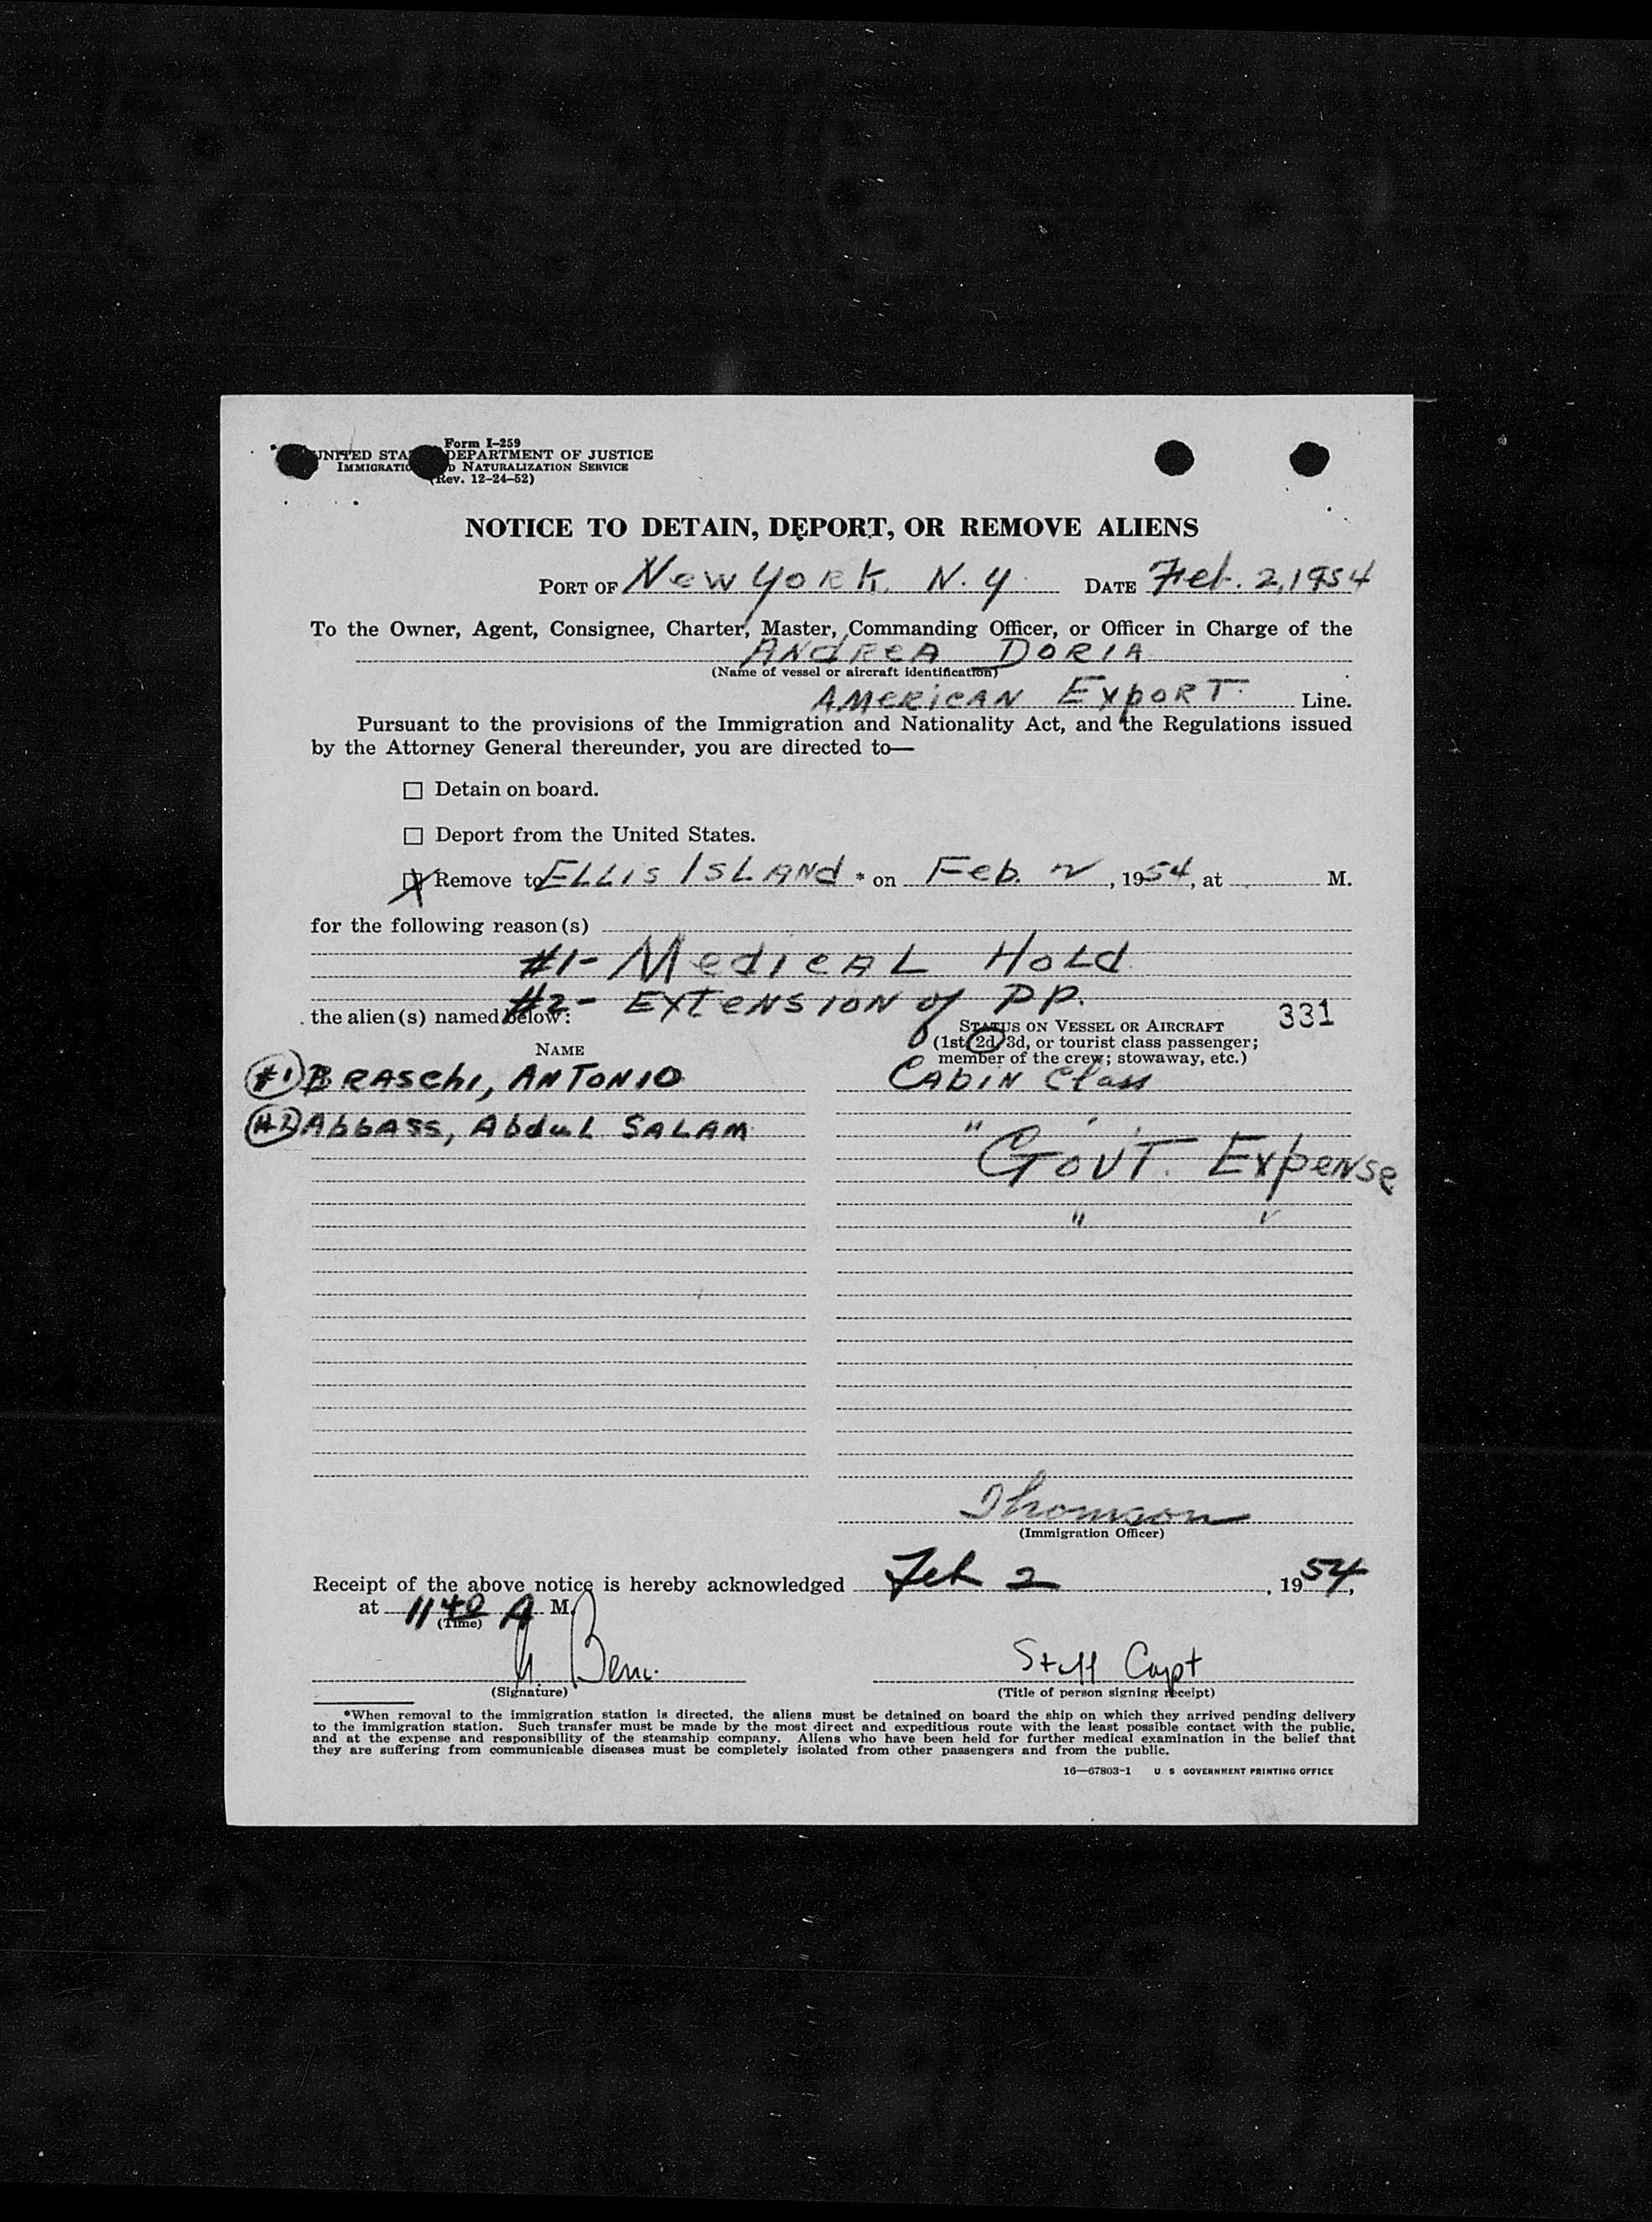 Form I-259
UNITED STA DEPARTMENT OF JUSTICE
IMMIGRATIO D NATURALIZATION SERVICE
(Rev. 12-24-52)
NOTICE TO DETAIN, DEPORT, OR REMOVE ALIENS
PORT OF New York, N.Y. DATE Feb. 2, 1954
To the Owner, Agent, Consignee, Charter, Master, Commanding Officer, or Officer in Charge of the
ANdReA DORIA
(Name of vessel or aircraft identification)
AMERICAN ExpoRT Line.
Pursuant to the provisions of the Immigration and Nationality Act, and the Regulations issued
by the Attorney General thereunder, you are directed to—
☐ Detain on board.
☐ Deport from the United States.
☒ Remove to ELLis ISLANd * on Feb. 2, 1954, at M.
for the following reason(s)
#1- MedicAL HoLd
#2- EXTeNSION of PP.
the alien(s) named below: 331
NAME
STATUS ON VESSEL OR AIRCRAFT
(1st, 2d, 3d, or tourist class passenger;
member of the crew; stowaway, etc.)
#1 BRASchi, ANTONIO CABIN Class
#2 AbbAss, AbduL SALAM " " "
GovT. Expense
" "
Thomson
(Immigration Officer)
Receipt of the above notice is hereby acknowledged Feb 2, 1954,
at 11 40 A M.
(Time)
Staff Capt
(Signature) (Title of person signing receipt)
*When removal to the immigration station is directed, the aliens must be detained on board the ship on which they arrived pending delivery
to the immigration station. Such transfer must be made by the most direct and expeditious route with the least possible contact with the public,
and at the expense and responsibility of the steamship company. Aliens who have been held for further medical examination in the belief that
they are suffering from communicable diseases must be completely isolated from other passengers and from the public.
16—67803-1 U. S GOVERNMENT PRINTING OFFICE